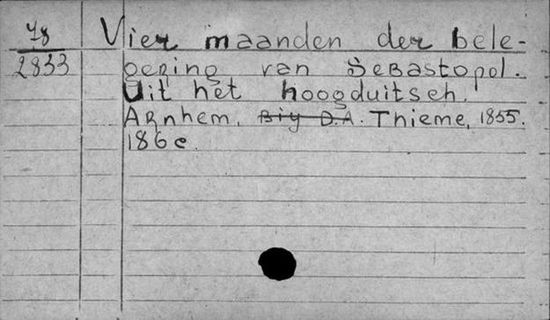 78 Vier maanden der bele-
2833 gering van Sebastopol.
Uit het hoogduitsch.
Arnhem. Bij D.A. Thieme, 1855.
186 c.